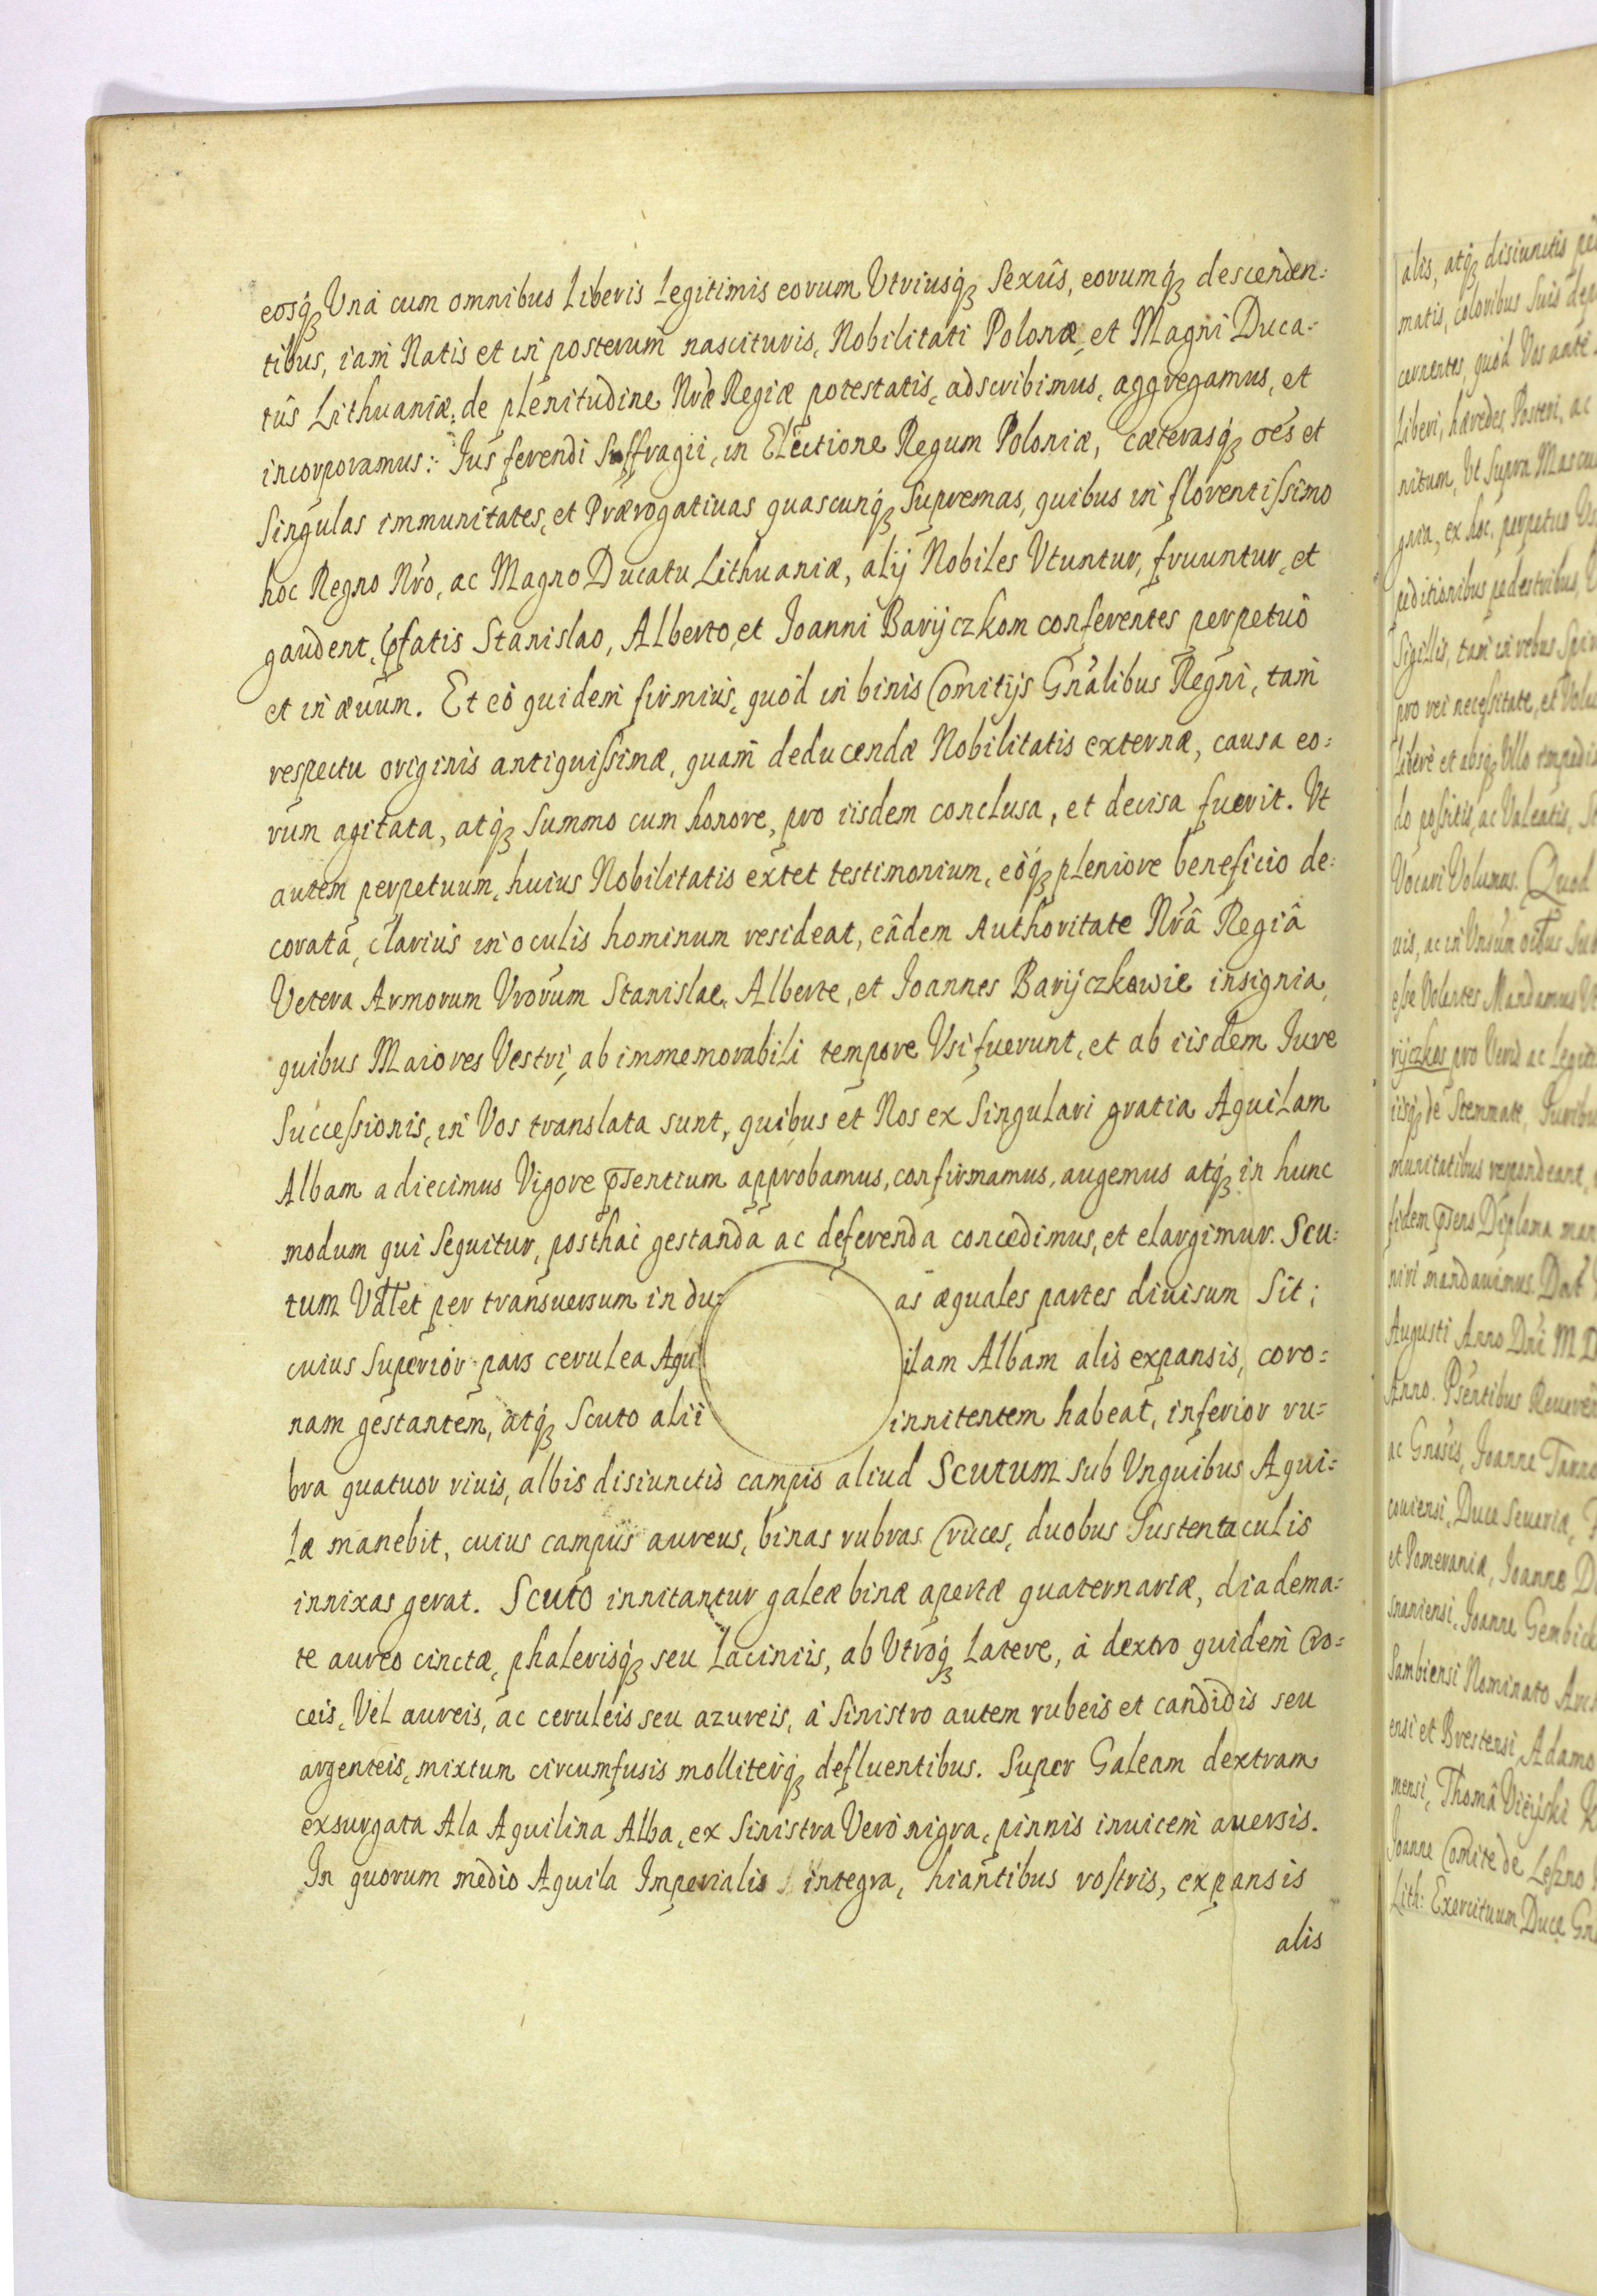 eosq́ꝫ Unà cum omnibus Liberis Legitimis eorum Utriusq́ꝫ Sexûs, eorumq́ꝫ descenden:
tibus, iam Natis et in posterum nascituris, Nobilitati Polonæ, et Magni Duca:
tûs Lithuaniæ, de plenitudine Nr̃æ Regiæ potestatis, adscribimus, aggregamus, et
incorporamus: Jus ferendi Suffragii, in Electione Regum Poloniæ, cæterasq́ꝫ oẽs et
Singulas immunitates, et Prærogatiuas quascunq́ꝫ Supremas, quibus in florentissimo
hoc Regno Nr̃o, ac Magno Ducatu Lithuaniæ, alij Nobiles Utuntur, fruuntur, et
gaudent, p̃fatis Stanislao, Alberto, et Joanni Barijczkom conferentes perpetuò
et in æuum. Et eò quidem firmius, quòd in binis Comitijs Gñalibus Regni, tam
respectu originis antiquissimæ, quam deducendæ Nobilitatis externæ, causa eo:
rum agitata, atq́ꝫ Summo cum honore, pro iisdem conclusa, et decisa fuerit. Ut
autem perpetuum, huius Nobilitatis extet testimonium, eòq́ꝫ pleniore beneficio de:
corata, clarius in oculis hominum resideat, eâdem Authoritate Nr̃â Regiâ
Vetera Armorum Vr̃orum Stanislae, Alberte, et Joannes Barijczkowie insignia,
quibus Maiores Vestri, ab immemorabili tempore Usi fuerunt, et ab iisdem Jure
Successionis, in Vos translata sunt, quibus et Nos ex Singulari gratia Aquilam
Albam adiecimus Vigore p̃sentium approbamus, confirmamus, augemus atq́ꝫ in hunc
modum qui Sequitur, posthac gestanda ac deferenda concedimus, et elargimur. Scu:
tum Vdlet per transuersum in du: as æquales partes diuisum Sit;
cuius Superior pars cerulea Aqui ilam Albam alis expansis, coro:
nam gestantem, atq́ꝫ Scuto alii innitentem habeat, inferior ru:
bra quatuor riuis, albis disiunctis campis aliud Scutum sub Unguibus Aqui:
læ manebit, cuius campus aureus, binas rubras Cruces, duobus Sustentaculis
innixas gerat. Scuto innitantur galeæ binæ apertæ quaternariæ, diadema:
te aureo cinctæ, phalerisq́ꝫ seu Laciniis, ab Utroq́ꝫ Latere, à dextro quidem Cro:
ceis, Vel aureis, ac ceruleis seu azureis, à Sinistro autem rubeis et candidis seu
argenteis, mixtum circumfusis molliterq́ꝫ defluentibus. Super Galeam dextram
exsurgata Ala Aquilina Alba, ex Sinistra Verò nigra, pinnis inuicem auersis.
In quorum medio Aquila Imperialis integra, hiantibus rostris, expansis
alis
alis, atq́ꝫ disiunctis
matis, coloribus suis
cernentes, quòd Vos
Liberi, hæredes, Posteri, ac
nitum, Ut Supra
gnia, ex hoc, perpetuo
peditionibus pedestribus,
Sigillis, tam in rebus
pro rei necessitate, et
Liberè et absq́ꝫ Ullo
do possitis, ac Valeatis,
Vocari Volumus. Quod
uis, ac in Unsum oĩbus
esse Volentes Mandamus
rijczkos pro Veris ac
iisq́ꝫ de Stemmate,
munitatibus respondeant,
fidem p̃sens Diploma
niri mandauimus. Dat
Augusti Anno Dñi M
Anno. P̃sentibus
ac Gñosis, Joanne
couiensi, Duce Seueriæ,
et Pomeraniæ, Joanne
snaniensi, Joanne
Sambiensi Nominato
ensi et Brestensi, Adamo
mensi, Thomâ
Joanne Comite de Leszno
Lith: Exercituum Duce